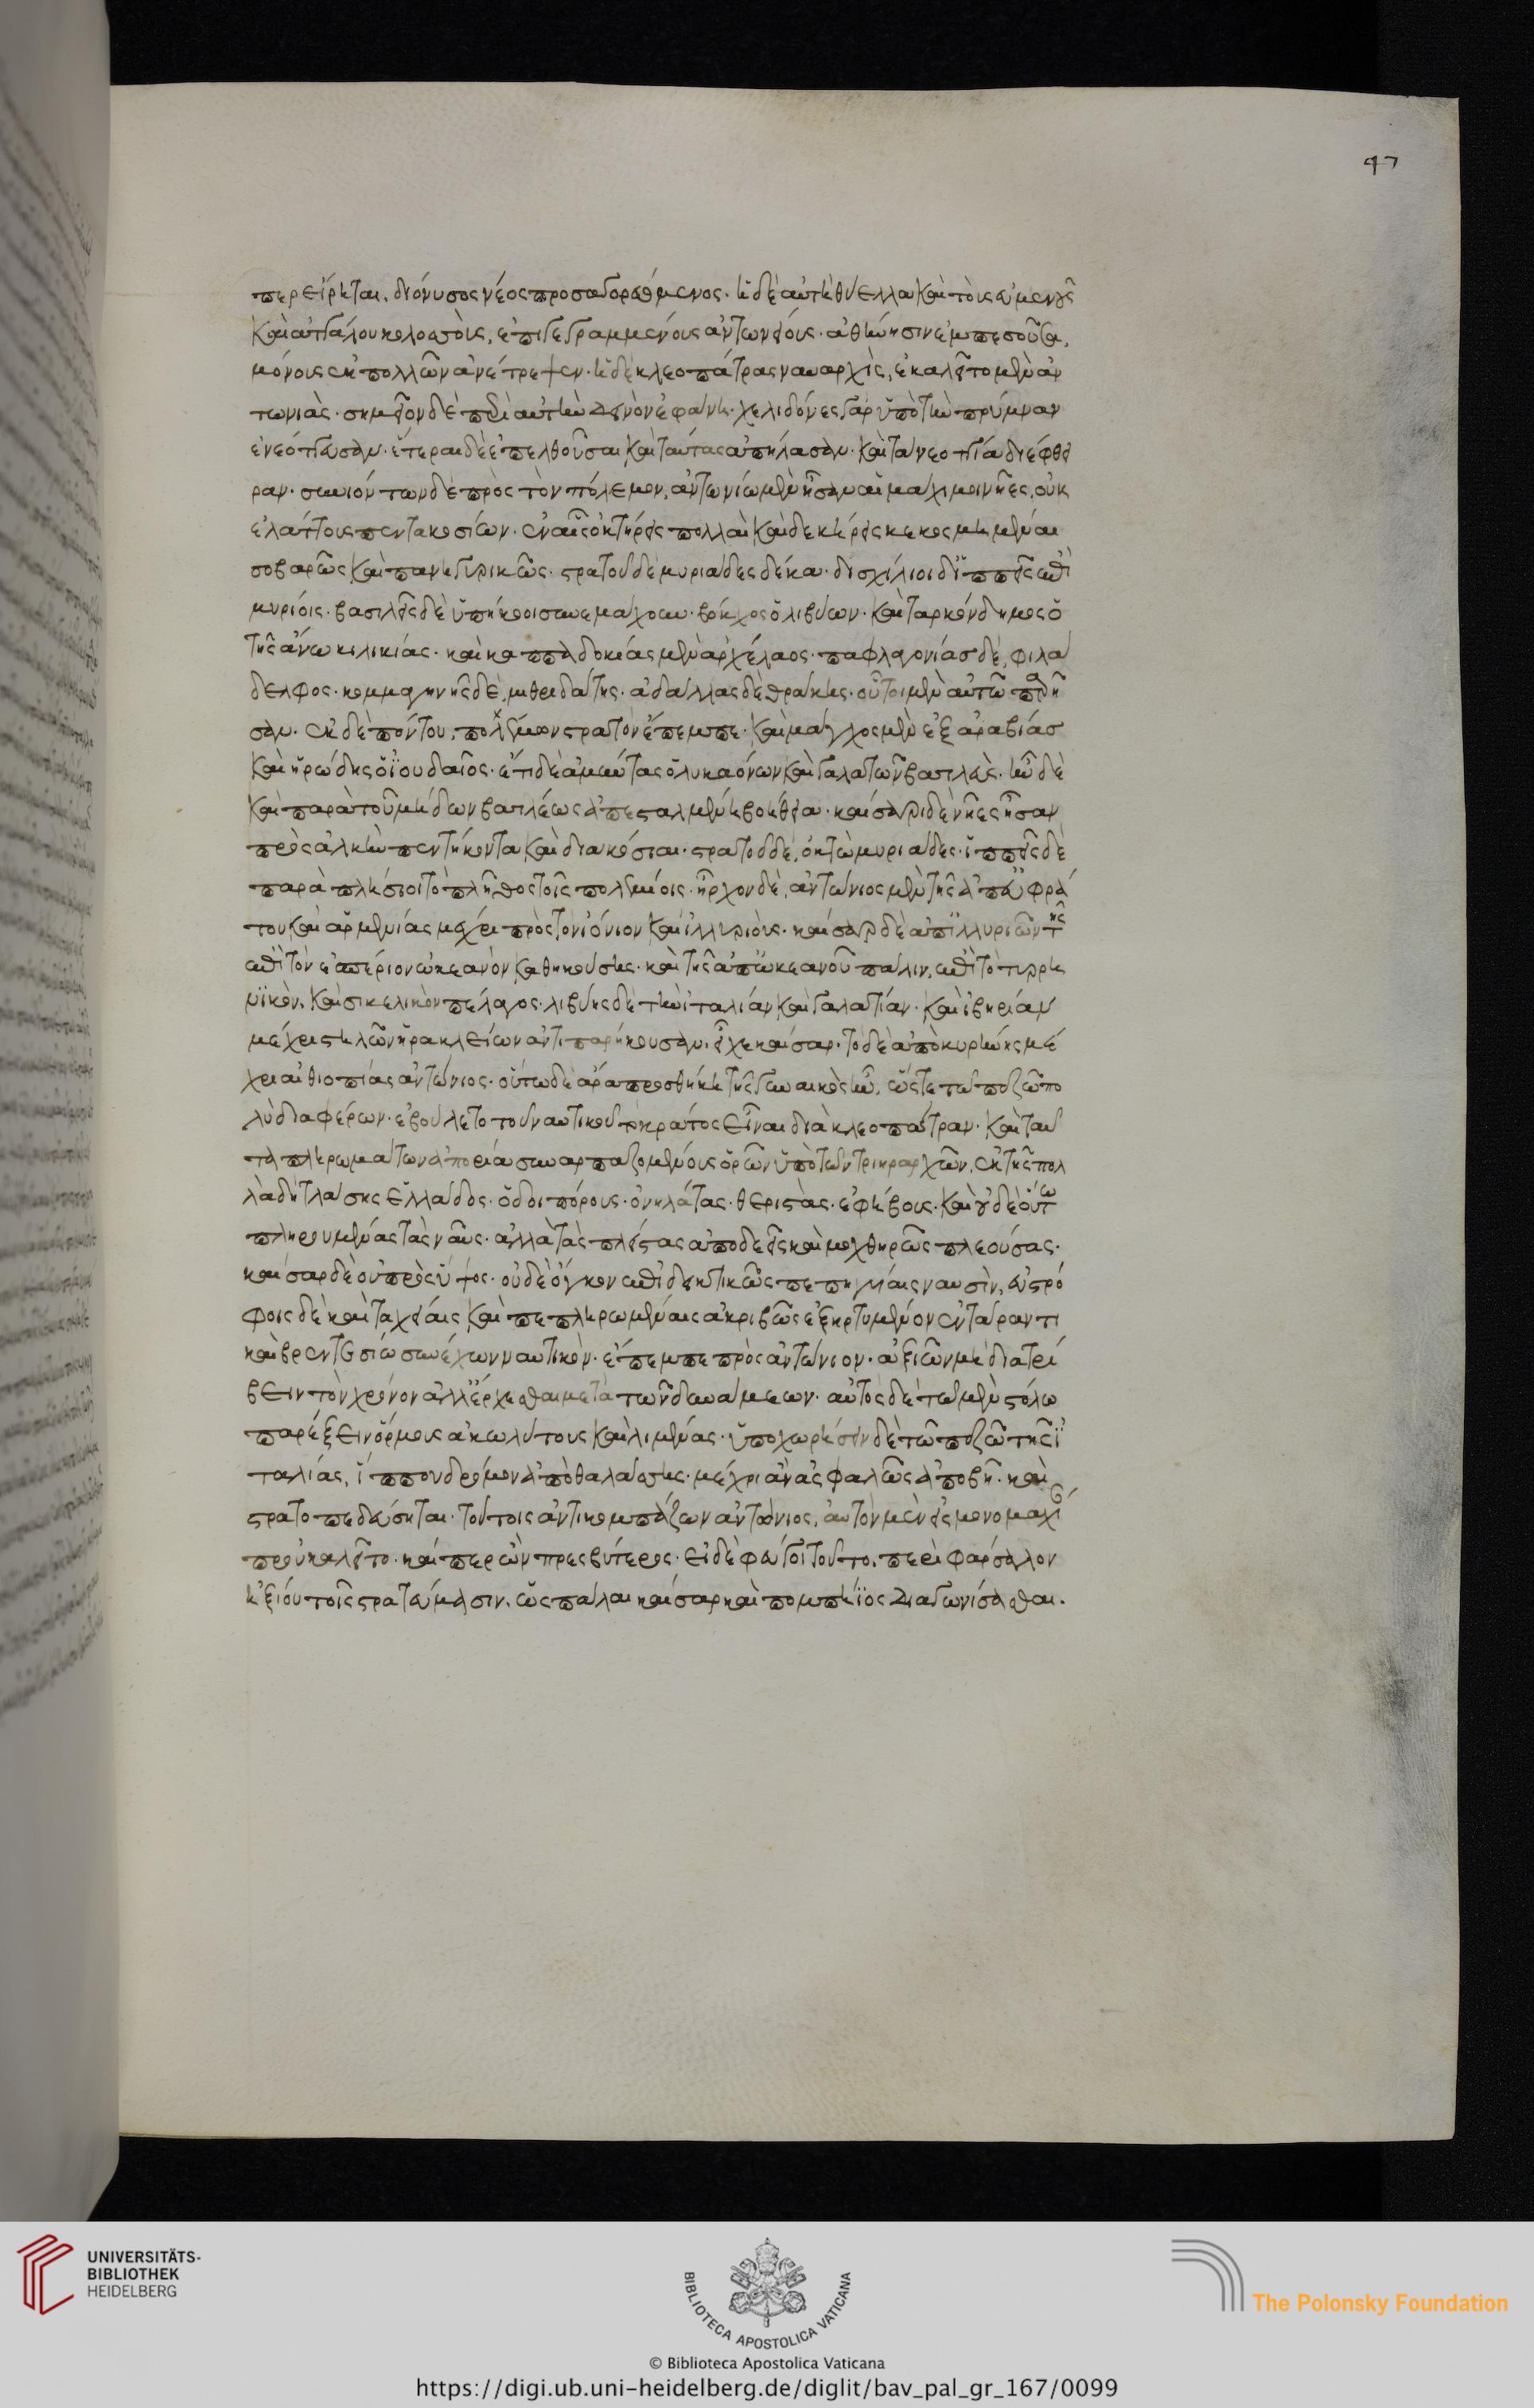 47
περ εἴρηται, διόνυσος νέος προσαγορευόμενος. ἡ δὲ αὐτὴ θύελλα καὶ τοὺς εὐμενοῦς
καὶ ἀττάλου κολοσσοὺς, ἐπιγεγραμμένους ἀντωνείους ἀθήνησιν ἐμπεσοῦσα,
μόνους ἐκ πολλῶν ἀνέτρεψεν. ἡ δὲ κλεοπάτρας ναυαρχὶς, ἐκαλεῖτο μὲν ἀν
τωνιὰς. σημεῖον δὲ περὶ αὐτὴν δεινὸν ἐφάνη. χελιδόνες γὰρ ὑπὸ τὴν πρύμναν
ἐνεόττευσαν. ἕτεραι δὲ ἐπελθοῦσαι καὶ ταύτας ἀπήλασαν. καὶ τὰ νεοττία διέφθει
ραν. συνιόντων δὲ πρὸς τὸν πόλεμον, ἀντωνίω μὲν ἦσαν αἱ μάχιμοι νῆες, οὐκ
ἐλάττους πεντακοσίων. ἐν αἷς ὀκτήρεις πολλαὶ καὶ δεκήρεις κεκοσμημέναι
σοβαρῶς καὶ πανηγυρικῶς. στρατοῦ δὲ μυριάδες δέκα. δισχίλιοι δ' ἱππεῖς ἐπὶ
μυρίοις. βασιλεῖς δὲ ὑπήκοοι συνεμάχουν. βόκχος ὁ λιβύων. καὶ ταρκόνδημος ὁ
τῆς ἄνω κιλικίας. καὶ καππαδοκίας μὲν ἀρχέλαος. παφλαγονίας δὲ, φιλά
δελφος. κομμαγηνῆς δὲ, μιθριδάτης. ἀδάλλας δὲ θράκης. οὗτοι μὲν αὐτῶ παρῆ
σαν. ἐκ δὲ πόντου, πολέμων στρατὸν ἔπεμπε. καὶ μάγχος μὲν ἐξ ἀραβίας
καὶ ἡρώδης ὁ ἰουδαῖος. ἔτι δὲ ἀμύντας ὁ λυκαόνων καὶ γαλατῶν βασιλεὺς. ἦν δὲ
καὶ παρὰ τοῦ μήδων βασιλέως ἀπεσταλμένη βοήθεια. καίσαρι δὲ νῆες ἦσαν
πρὸς ἀλκὴν πεντήκοντα καὶ διακόσιαι. στρατοῦ δὲ, ὀκτὼ μυριάδες. ἱππεῖς δὲ
παρὰ πλησίοι τὸ πλῆθος τοῖς πολεμίοις. ἦρχον δὲ, ἀντώνιος μὲν τῆς ἀπ' εὐφρά
του καὶ ἀρμενίας μέχρι πρὸς τὸν ἰόνιον καὶ ἰλλυριοὺς. καίσαρ δὲ ἀπ' ἰλλυριῶν τῆς
ἐπὶ τὸν ἑσπέριον ὠκεανὸν καθηκούσης. καὶ τῆς ἀπ' ὠκεανοῦ πάλιν, ἐπὶ τὸ τυρρη
νϊκὸν, καὶ σικελικὸν πέλαγος. λιβύης δὲ τὴν ἰταλίαν καὶ γαλατίαν. καὶ ἰβηρίαν
μέχρι στηλῶν ἡρακλείων ἀντιπαρήκουσαν. εἶχε καίσαρ. τὸ δὲ ἀπὸ κυρήνης μέ
χρι αἰθιοπίας ἀντώνιος. οὕτω δὲ ἄρα προσθήκη τῆς γυναικὸς ἦν, ὥστε τῶ πεζῶ πο
λὺ διαφέρων. ἐβούλετο τοῦ ναυτικοῦ τὸ κράτος εἶναι διὰ κλεοπάτραν. καὶ ταῦ
τα πληρωμάτων ἀπορία συναρπαζομένους ὁρῶν ὑπὸ τῶν τριηραρχῶν, ἐκ τῆς πολ
λὰ δὴ τλάσης ἑλλάδος. ὁδοιπόρους. ὀνηλάτας. θεριστὰς. ἐφήβους. καὶ οὐδὲ οὕτω
πληρουμένας τὰς ναῦς. ἀλλὰ τὰς πλείστας ἀποδεεῖς καὶ μοχθηρῶς πλεούσας.
καίσαρ δὲ οὐ πρὸς ὕψος. οὐδὲ ὄγκον ἐπιδεικτικῶς πεπηγυίαις ναυσὶν, εὐστρό
φοις δὲ καὶ ταχείαις καὶ πεπληρωμέναις ἀκριβῶς ἐξηρτυμένον ἐν τάραντι
καὶ βρεντεσίω συνέχων ναυτικὸν. ἔπεμπε πρὸς ἀντώνιον. ἀξιῶν μὴ διατρί
βειν τὸν χρόνον ἀλλ' ἔρχεσθαι μετὰ τῶν δυνάμεων. αὐτὸς δὲ τῶ μὲν στόλω
παρέξειν ὅρμους ἀκωλύτους καὶ λιμένας. ὑποχωρήσειν δὲ τῶ πεζῶ τῆς ἰ
ταλίας, ἵππου δρόμον ἀπὸ θαλάσσης. μέχρι ἂν ἀσφαλῶς ἀποβῆ. καὶ
στρατοπεδεύσηται. τούτοις ἀντικομπάζων ἀντώνιος, αὐτὸν μὲν εἰς μονομαχί
προὐκαλεῖτο. καίπερ ὢν πρεσβύτερος. εἰ δὲ φεύγοι τοῦτο. περὶ φάρσαλον
ἠξίου τοῖς στρατεύμασιν. ὡς πάλαι καίσαρ καὶ πομπήϊος διαγωνίσασθαι.
UNIVERSITÄTS-
BIBLIOTHEK
HEIDELBERG
BIBLIOTECA APOSTOLICA VATICANA
The Polonsky Foundation
© Biblioteca Apostolica Vaticana
https://digi.ub.uni-heidelberg.de/diglit/bav_pal_gr_167/0099